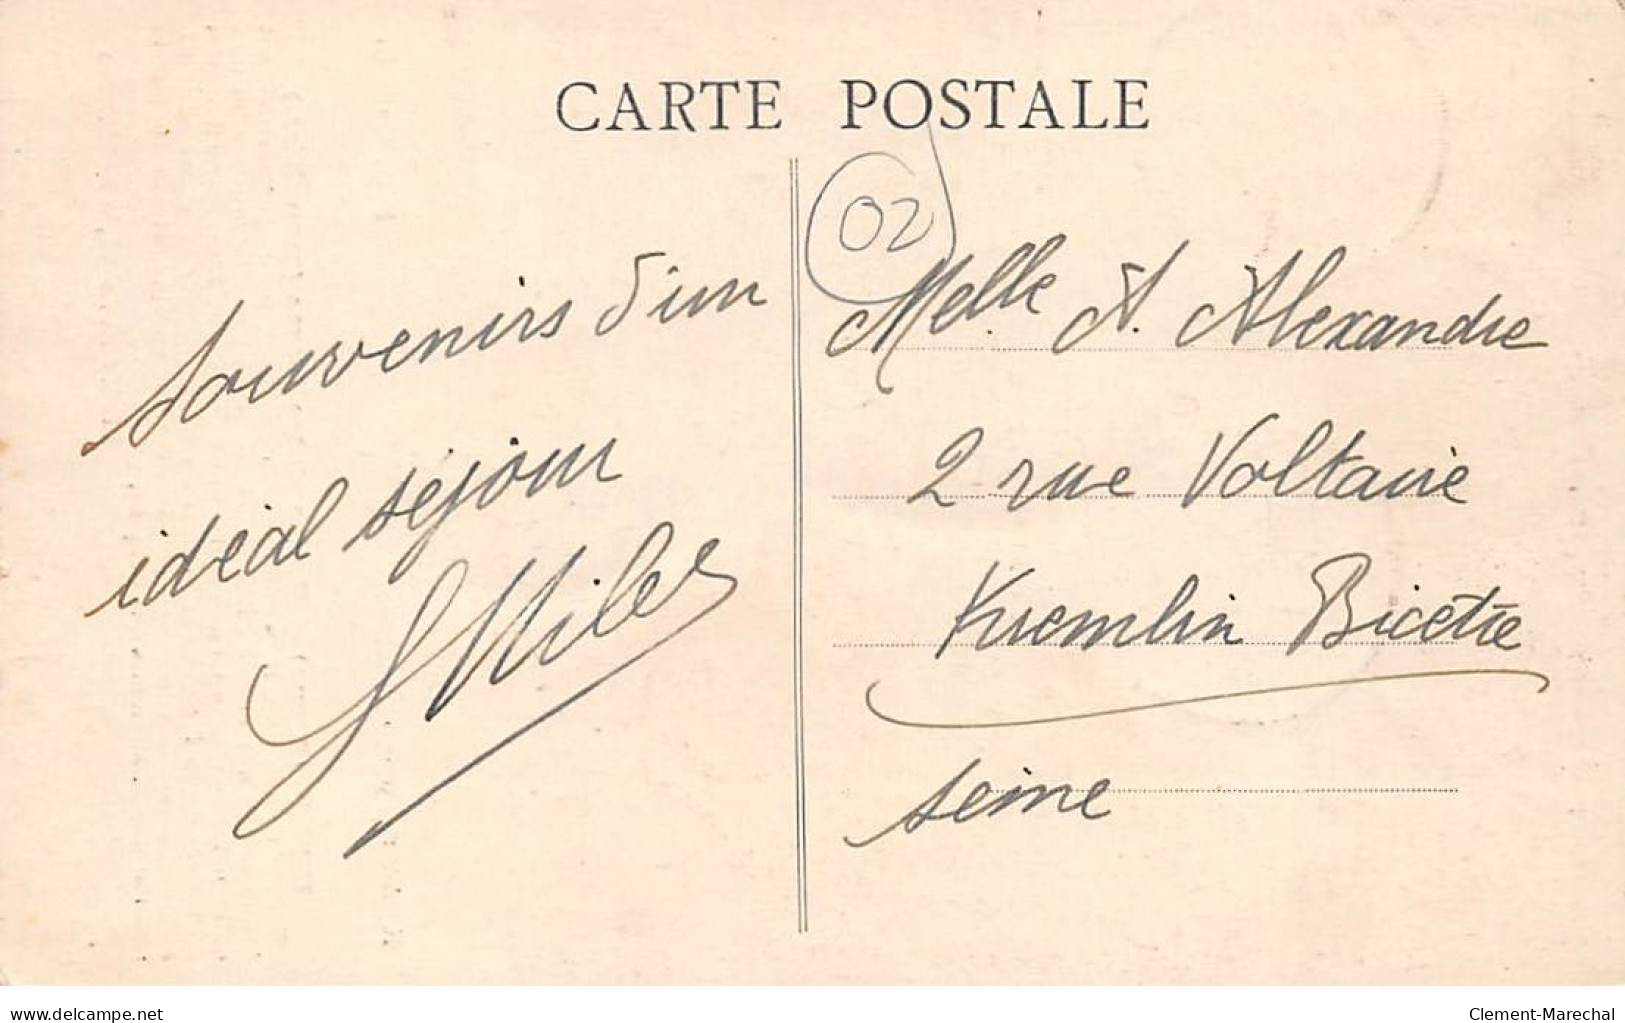 CARTE POSTALE
02
Souvenirs d'un
idéal séjour
Melle A. Alexandre
2 rue Voltaire
Kremlin Bicêtre
Seine
delcampe.net
Clement-Marechal